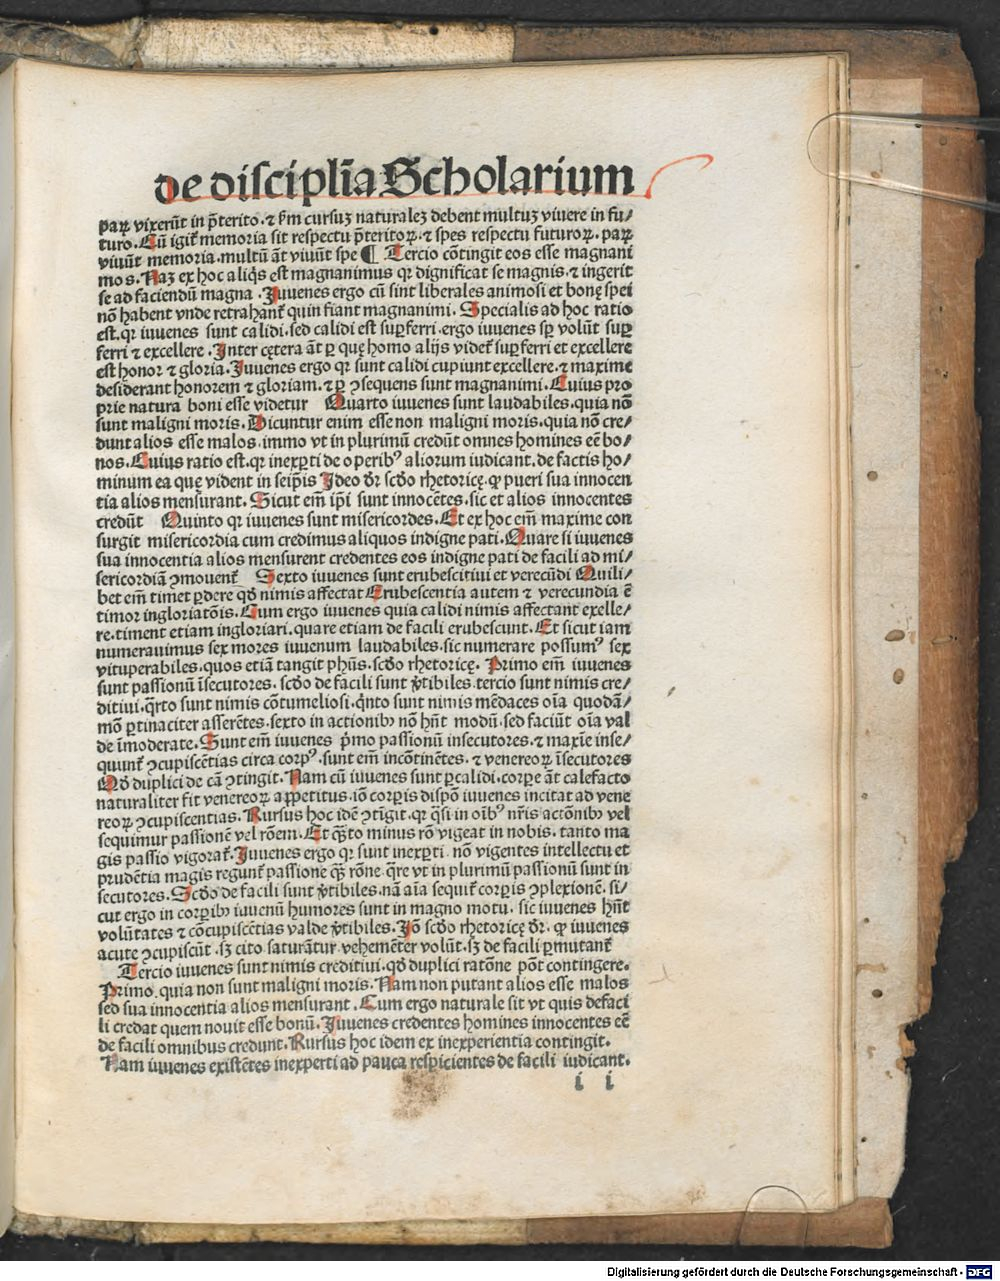 de discipl̄ia Scholarium
paꝝ vixerūt in p̄terito. ⁊ ẜm cursuꝫ naturaleꝫ debent multuꝫ viuere in fu/
turo. Cū igit̄ memoria sit respectu p̄teritoꝝ. ⁊ spes respectu futuroꝝ. paꝝ
viuūt memoria. multū āt viuūt spe ¶ Tercio cōtingit eos esse magnani
mos. Naꝫ ex hoc aliq̇s est magnanimus qꝛ dignificat se magnis. ⁊ ingerit
se ad faciendū magna. Iuuenes ergo cū sint liberales animosi et bonę spei
nōn habent vnde retrahant̄ quin fiant magnanimi. Specialis ad hoc ratio
est. qꝛ iuuenes sunt calidi. sed calidi est suꝑferri. ergo iuuenes sꝑ volūt suꝑ
ferri ⁊ excellere. Inter cętera āt ꝑ quę homo alijs videt̄ suꝑferri et excellere
est honor ⁊ gloria. Iuuenes ergo qꝛ sunt calidi cupiunt excellere. ⁊ maxime
desiderant honorem ⁊ gloriam. ⁊ ꝑ ↄsequens sunt magnanimi. Cuius pro
prie natura boni esse videtur Quarto iuuenes sunt laudabiles. quia nōn
sunt maligni moris. Dicuntur enim esse non maligni moris. quia nōn cre/
dunt alios esse malos. immo vt in plurimū credūt omnes homines eē bo/
nos. Cuius ratio est. qꝛ inexꝑti de operibꝰ aliorum iudicant. de factis ho/
minum ea quę vident in seip̄is Ideo d̄r scd̄o rhetoricę. ꝙ pueri sua innocen
tia alios mensurant. Sicut em̄ ip̄i sunt innocētes. sic et alios innocentes
credūt Quinto qꝛ iuuenes sunt misericordes. Et ex hoc em̄ maxime con
surgit misericordia cum credimus aliquos indigne pati. Quare si iuuenes
sua innocentia alios mensurent credentes eos indigne pati de facili ad mi/
sericordiā ↄmouent̄ Sexto iuuenes sunt erubescitiui et verecūdi Quili/
bet em̄ timet ꝑdere qd̄ nimis affectat Erubescentia autem ⁊ verecundia ē
timor ingloriatōis. Cum ergo iuuenes quia calidi nimis affectant exelle/
re. timent etiam ingloriari. quare etiam de facili erubescunt. Et sicut iam
numerauimus sex mores iuuenum laudabiles. sic numerare possumꝰ sex
vituperabiles. quos etiā tangit ph̄us. scd̄o rhetoricę. Primo em̄ iuuenes
sunt passionū īsecutores. scd̄o de facili sunt v̄tibiles. tercio sunt nimis cre/
ditiui. q̄rto sunt nimis cōtumeliosi. q̇nto sunt nimis mēdaces oīa quodā/
mō ꝑtinaciter asserētes. sexto in actionibꝫ nō hn̄t modū. sed faciūt oīa val
de īmoderate. Sunt em̄ iuuenes p̄mo passionū insecutores. ⁊ maxīe inse/
quunt̄ ↄcupiscētias circa corpꝰ. sunt em̄ incōtinētes. ⁊ venereoꝝ īsecutores
Qd̄ duplici de cā ↄtingit. Nam cū iuuenes sunt ꝑcalidi. corꝑe āt calefacto
naturaliter fit venereoꝝ aꝑpetitus. iō corꝑis dispō iuuenes incitat ad vene
reoꝝ ↄcupiscentias. Rursus hoc idē ↄtīgit. qꝛ q̄si in oīb̄ꝰ nr̄is actōnibꝫ vel
sequimur passionē vel rōem. Et q̄ꝫto minus rō vigeat in nobis. tanto ma
gis passio vigorat̄. Iuuenes ergo qꝛ sunt inexꝑti nō vigentes intellectu et
prudētia magis regunt̄ passione q̄ꝫ rōne. q̄re vt in plurimū passionū sunt in
secutores. Scd̄o de facili sunt v̄tibiles. nā aīa sequit̄ corꝑis ↄplexionē. si/
cut ergo in corꝑibꝫ iuuenū humores sunt in magno motu. sic iuuenes hn̄t
volūtates ⁊ cōcupiscētias valde v̄tibiles. Iō scd̄o rhetoricę d̄r. ꝙ iuuenes
acute ↄcupiscūt. sꝫ cito saturātur vehemēter volūt. sꝫ de facili ꝑmutant̄
Tercio iuuenes sunt nimis creditiui. qd̄ duplici ratōne pōt contingere.
Primo. quia non sunt maligni moris. Nam non putant alios esse malos
sed sua innocentia alios mensurant. Cum ergo naturale sit vt quis defaci
li credat quem nouit esse bonū. Iuuenes credentes homines innocentes eē
de facili omnibus credunt. Rursus hoc idem ex inexperientia contingit.
Nam iuuenes existētes inexperti ad pauca respicientes de facili iudicant.
i i
Digitalisierung gefördert durch die Deutsche Forschungsgemeinschaft - DFG